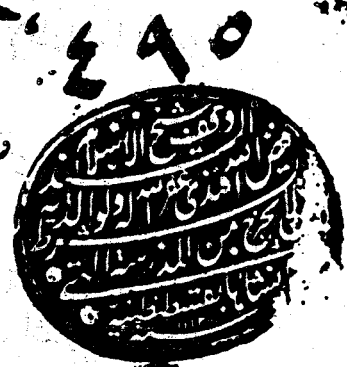 ٤٩٥
وقف شيخ الاسلام
فيض الله افندى غفر الله له ولوالديه
بشرط ان لا يخرج من المدرسة التى
انشأها بقسطنطينية
سنة ١١١٢